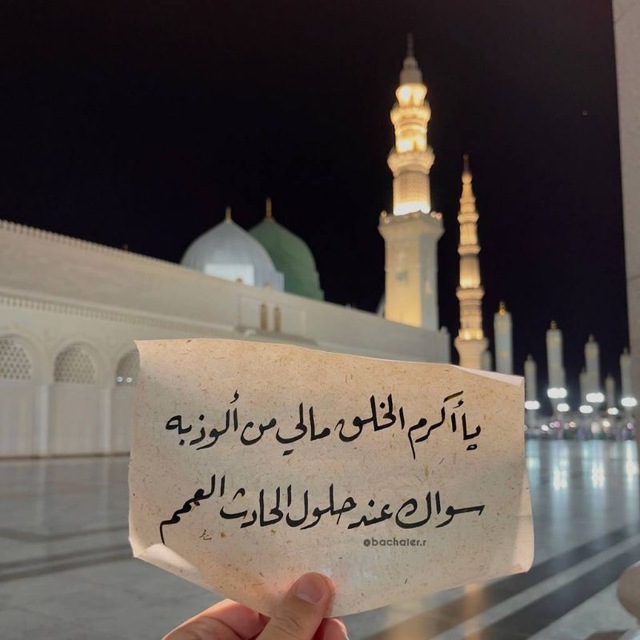 يا أكرم الخلق مالي من ألوذ به
سواك عند حلول الحادث العمم
@bachaler.r